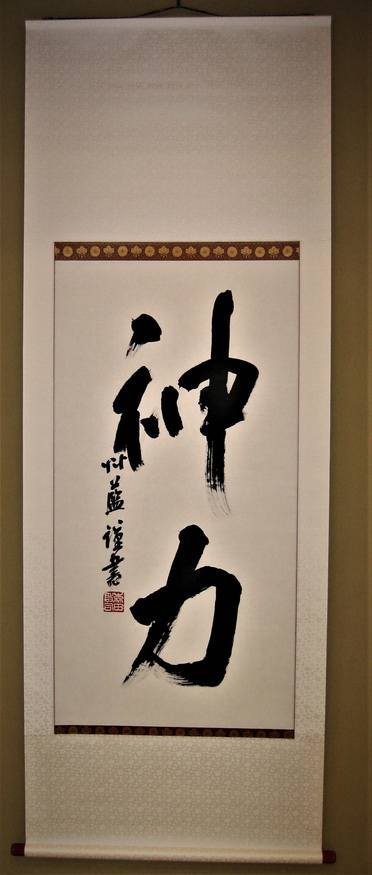 神力
艸藍謹書